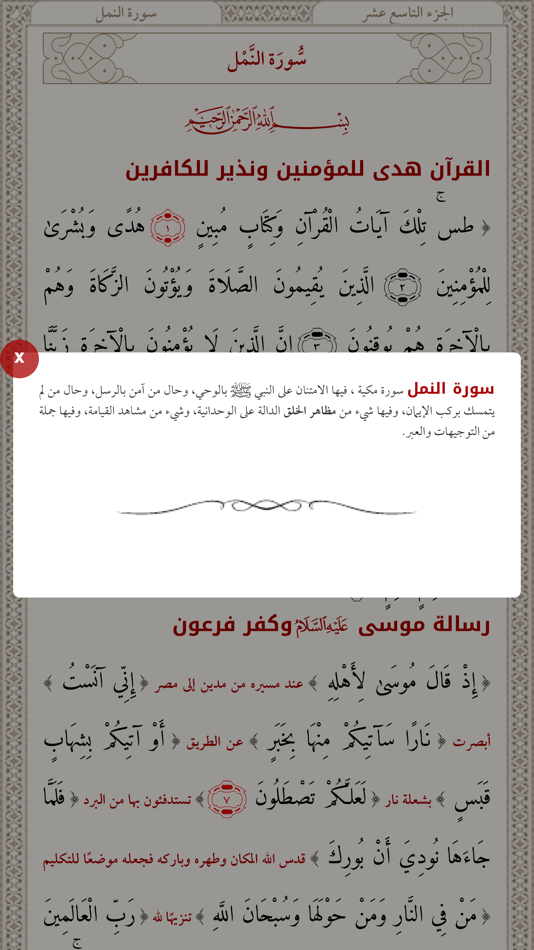 الجزء التاسع عشر
سورة النمل
سُّورَة النَّمْل
بِسْمِ اللَّهِ الرَّحْمَٰنِ الرَّحِيمِ
القرآن هدى للمؤمنين ونذير للكافرين
﴿ طسۚ تِلْكَ آيَاتُ الْقُرْآنِ وَكِتَابٍ مُبِينٍ ١ هُدًى وَبُشْرَىٰ
لِلْمُؤْمِنِينَ ٢ الَّذِينَ يُقِيمُونَ الصَّلَاةَ وَيُؤْتُونَ الزَّكَاةَ وَهُمْ
بِالْآخِرَةِ هُمْ يُوقِنُونَ ٣ إِنَّ الَّذِينَ لَا يُؤْمِنُونَ بِالْآخِرَةِ زَيَّنَّا
X
سورة النمل سورة مكية ، فيها الامتنان على النبي ﷺ بالوحي، وحال من آمن بالرسل، وحال من لم
يتمسك بركب الإيمان، وفيها شيء من مظاهر الخلق الدالة على الوحدانية، وشيء من مشاهد القيامة، وفيها جملة
من التوجيهات والعبر.
رسالة موسى عَلَيْهِ السَّلَامُ وكفر فرعون
﴿ إِذْ قَالَ مُوسَىٰ لِأَهْلِهِ ﴾ عند مسيره من مدين إلى مصر ﴿ إِنِّي آنَسْتُ ﴾
أبصرت ﴿ نَارًا سَآتِيكُمْ مِنْهَا بِخَبَرٍ ﴾ عن الطريق ﴿ أَوْ آتِيكُمْ بِشِهَابٍ
قَبَسٍ ﴾ بشعلة نار ﴿ لَعَلَّكُمْ تَصْطَلُونَ ٧ ﴾ تستدفئون بها من البرد ﴿ فَلَمَّا
جَاءَهَا نُودِيَ أَنْ بُورِكَ ﴾ قدس الله المكان وطهره وباركه فجعله موضعًا للتكليم
﴿ مَنْ فِي النَّارِ وَمَنْ حَوْلَهَا وَسُبْحَانَ اللَّهِ ﴾ تنزيهًا لله ﴿ رَبِّ الْعَالَمِينَ